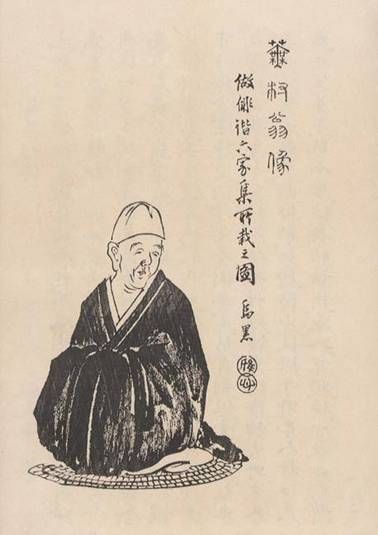 蕪村翁像
倣俳諧六家集所載之圖
為黑